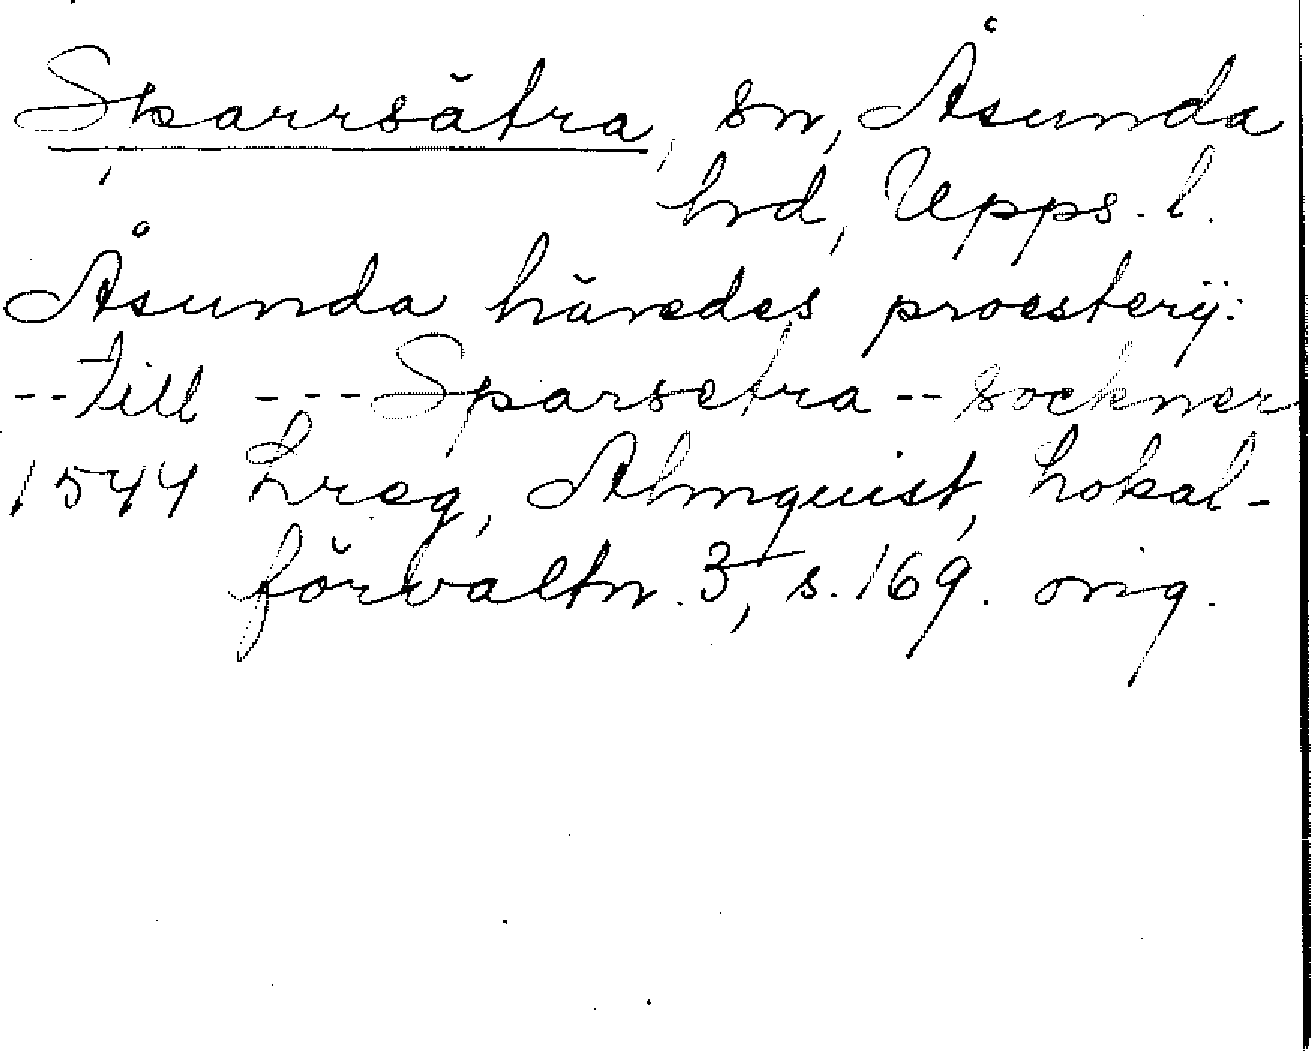 Sparrsätra, sn, Åsunda
hrd, Upps. l.
Åsunda häredes proesterij:
-- till --- Sparsetra -- sockner
1544 Lreg, Almquist, Lokal-
förvaltn. 3, s. 169. orig.